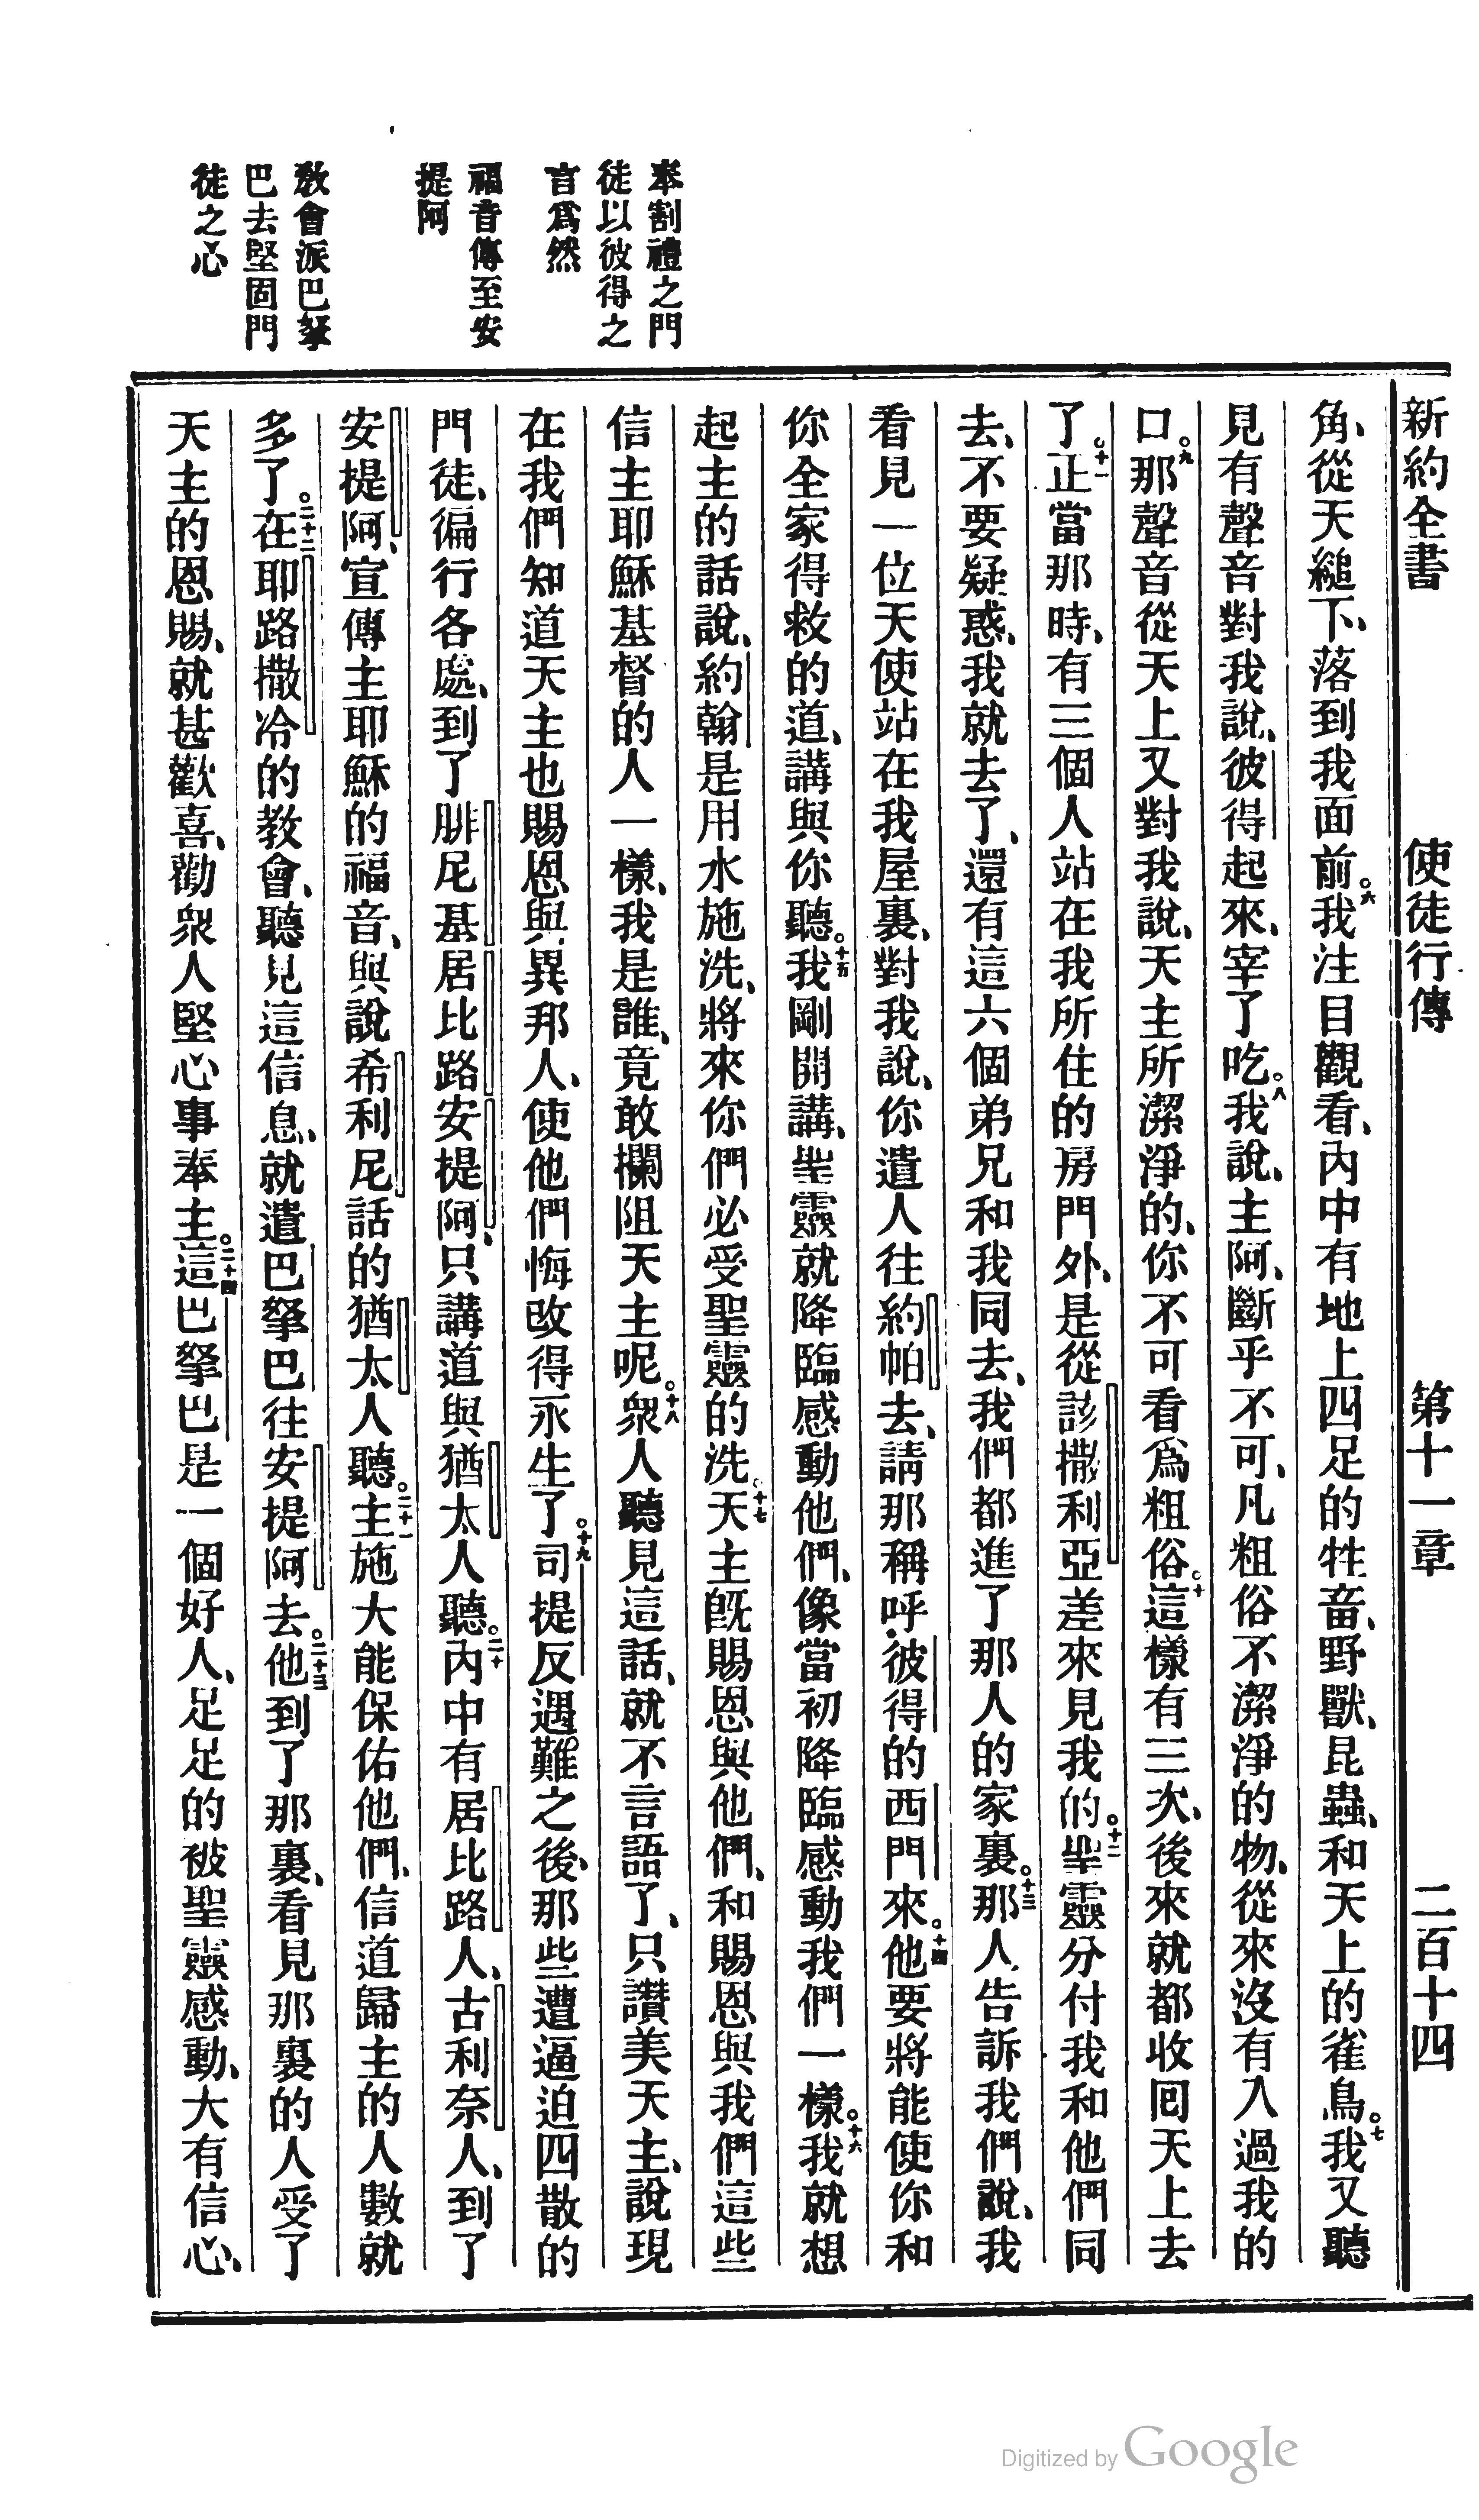 新約全書 使徒行傳 第十一章 二百十四
奉割禮之門
徒以彼得之
言爲然
福音傳至安
提阿
教會派巴拏
巴去堅固門
徒之心
角、從天縋下、落到我面前。六我注目觀看、內中有地上四足的牲畜、野獸、昆蟲、和天上的雀鳥。七我又聽
見有聲音對我說、彼得起來、宰了吃。八我說、主阿、斷乎不可、凡粗俗不潔淨的物、從來沒有入過我的
口。九那聲音從天上又對我說、天主所潔淨的、你不可看爲粗俗。十這樣有三次、後來就都收回天上去
了。十一正當那時、有三個人站在我所住的房門外、是從該撒利亞差來見我的。十二聖靈分付我和他們同
去、不要疑惑、我就去了、還有這六個弟兄和我同去、我們都進了那人的家裏。十三那人告訴我們說、我
看見一位天使站在我屋裏、對我說、你遣人往約帕去、請那稱呼彼得的西門來。十四他要將能使你和
你全家得救的道、講與你聽。十五我剛開講、聖靈就降臨感動他們、像當初降臨感動我們一樣。十六我就想
起主的話說、約翰是用水施洗、將來你們必受聖靈的洗。十七天主旣賜恩與他們、和賜恩與我們這些
信主耶穌基督的人一樣、我是誰、竟敢攔阻天主呢。十八衆人聽見這話、就不言語了、只讚美天主、說現
在我們知道天主也賜恩與異邦人、使他們悔改得永生了。十九司提反遇難之後、那些遭逼迫四散的
門徒、徧行各處、到了腓尼基居比路安提阿、只講道與猶太人聽。二十內中有居比路人、古利奈人、到了
安提阿、宣傳主耶穌的福音、與說希利尼話的猶太人聽。二十一主施大能保佑他們、信道歸主的人數就
多了。二十二在耶路撒冷的教會、聽見這信息、就遣巴拏巴往安提阿去。二十三他到了那裏、看見那裏的人受了
天主的恩賜、就甚歡喜、勸衆人堅心事奉主。二十四這巴拏巴是一個好人、足足的被聖靈感動、大有信心、
Digitized by Google